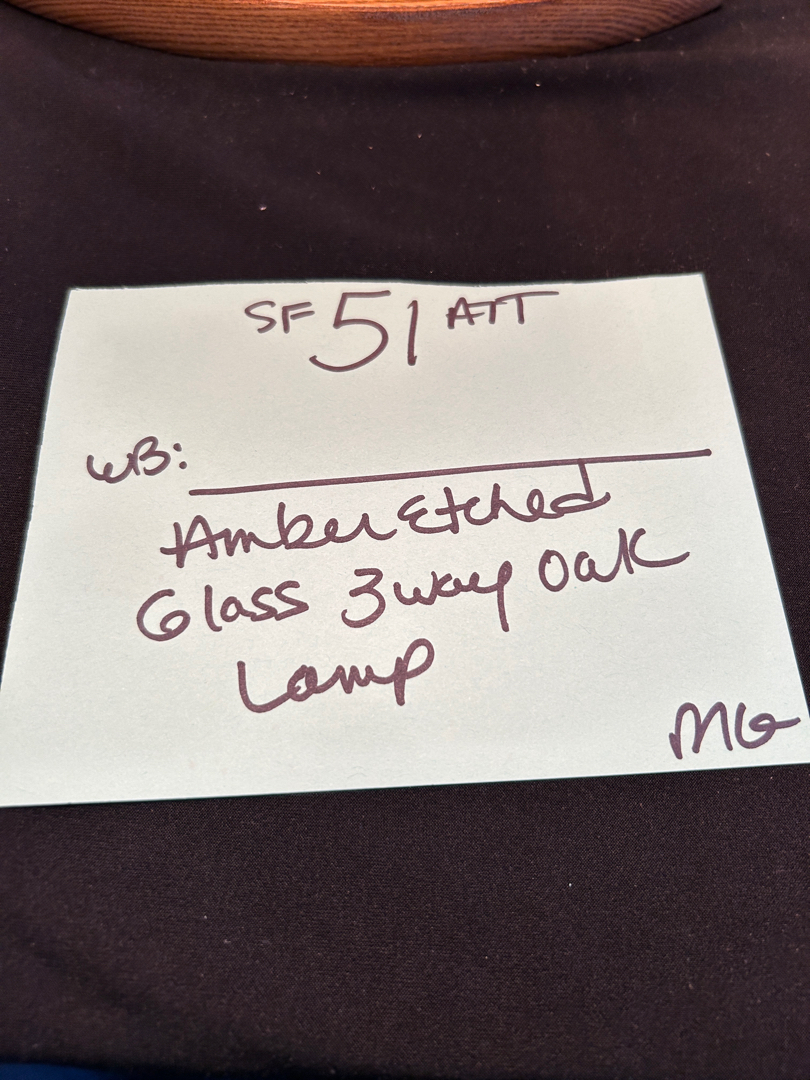 SF 51 ATT
WB:
Amber Etched
Glass 3way Oak
Lamp
MG